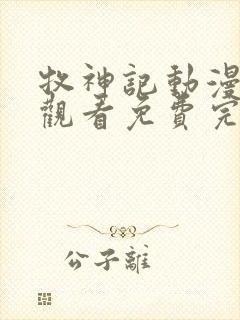 牧神記動漫
觀看免費完
公子離